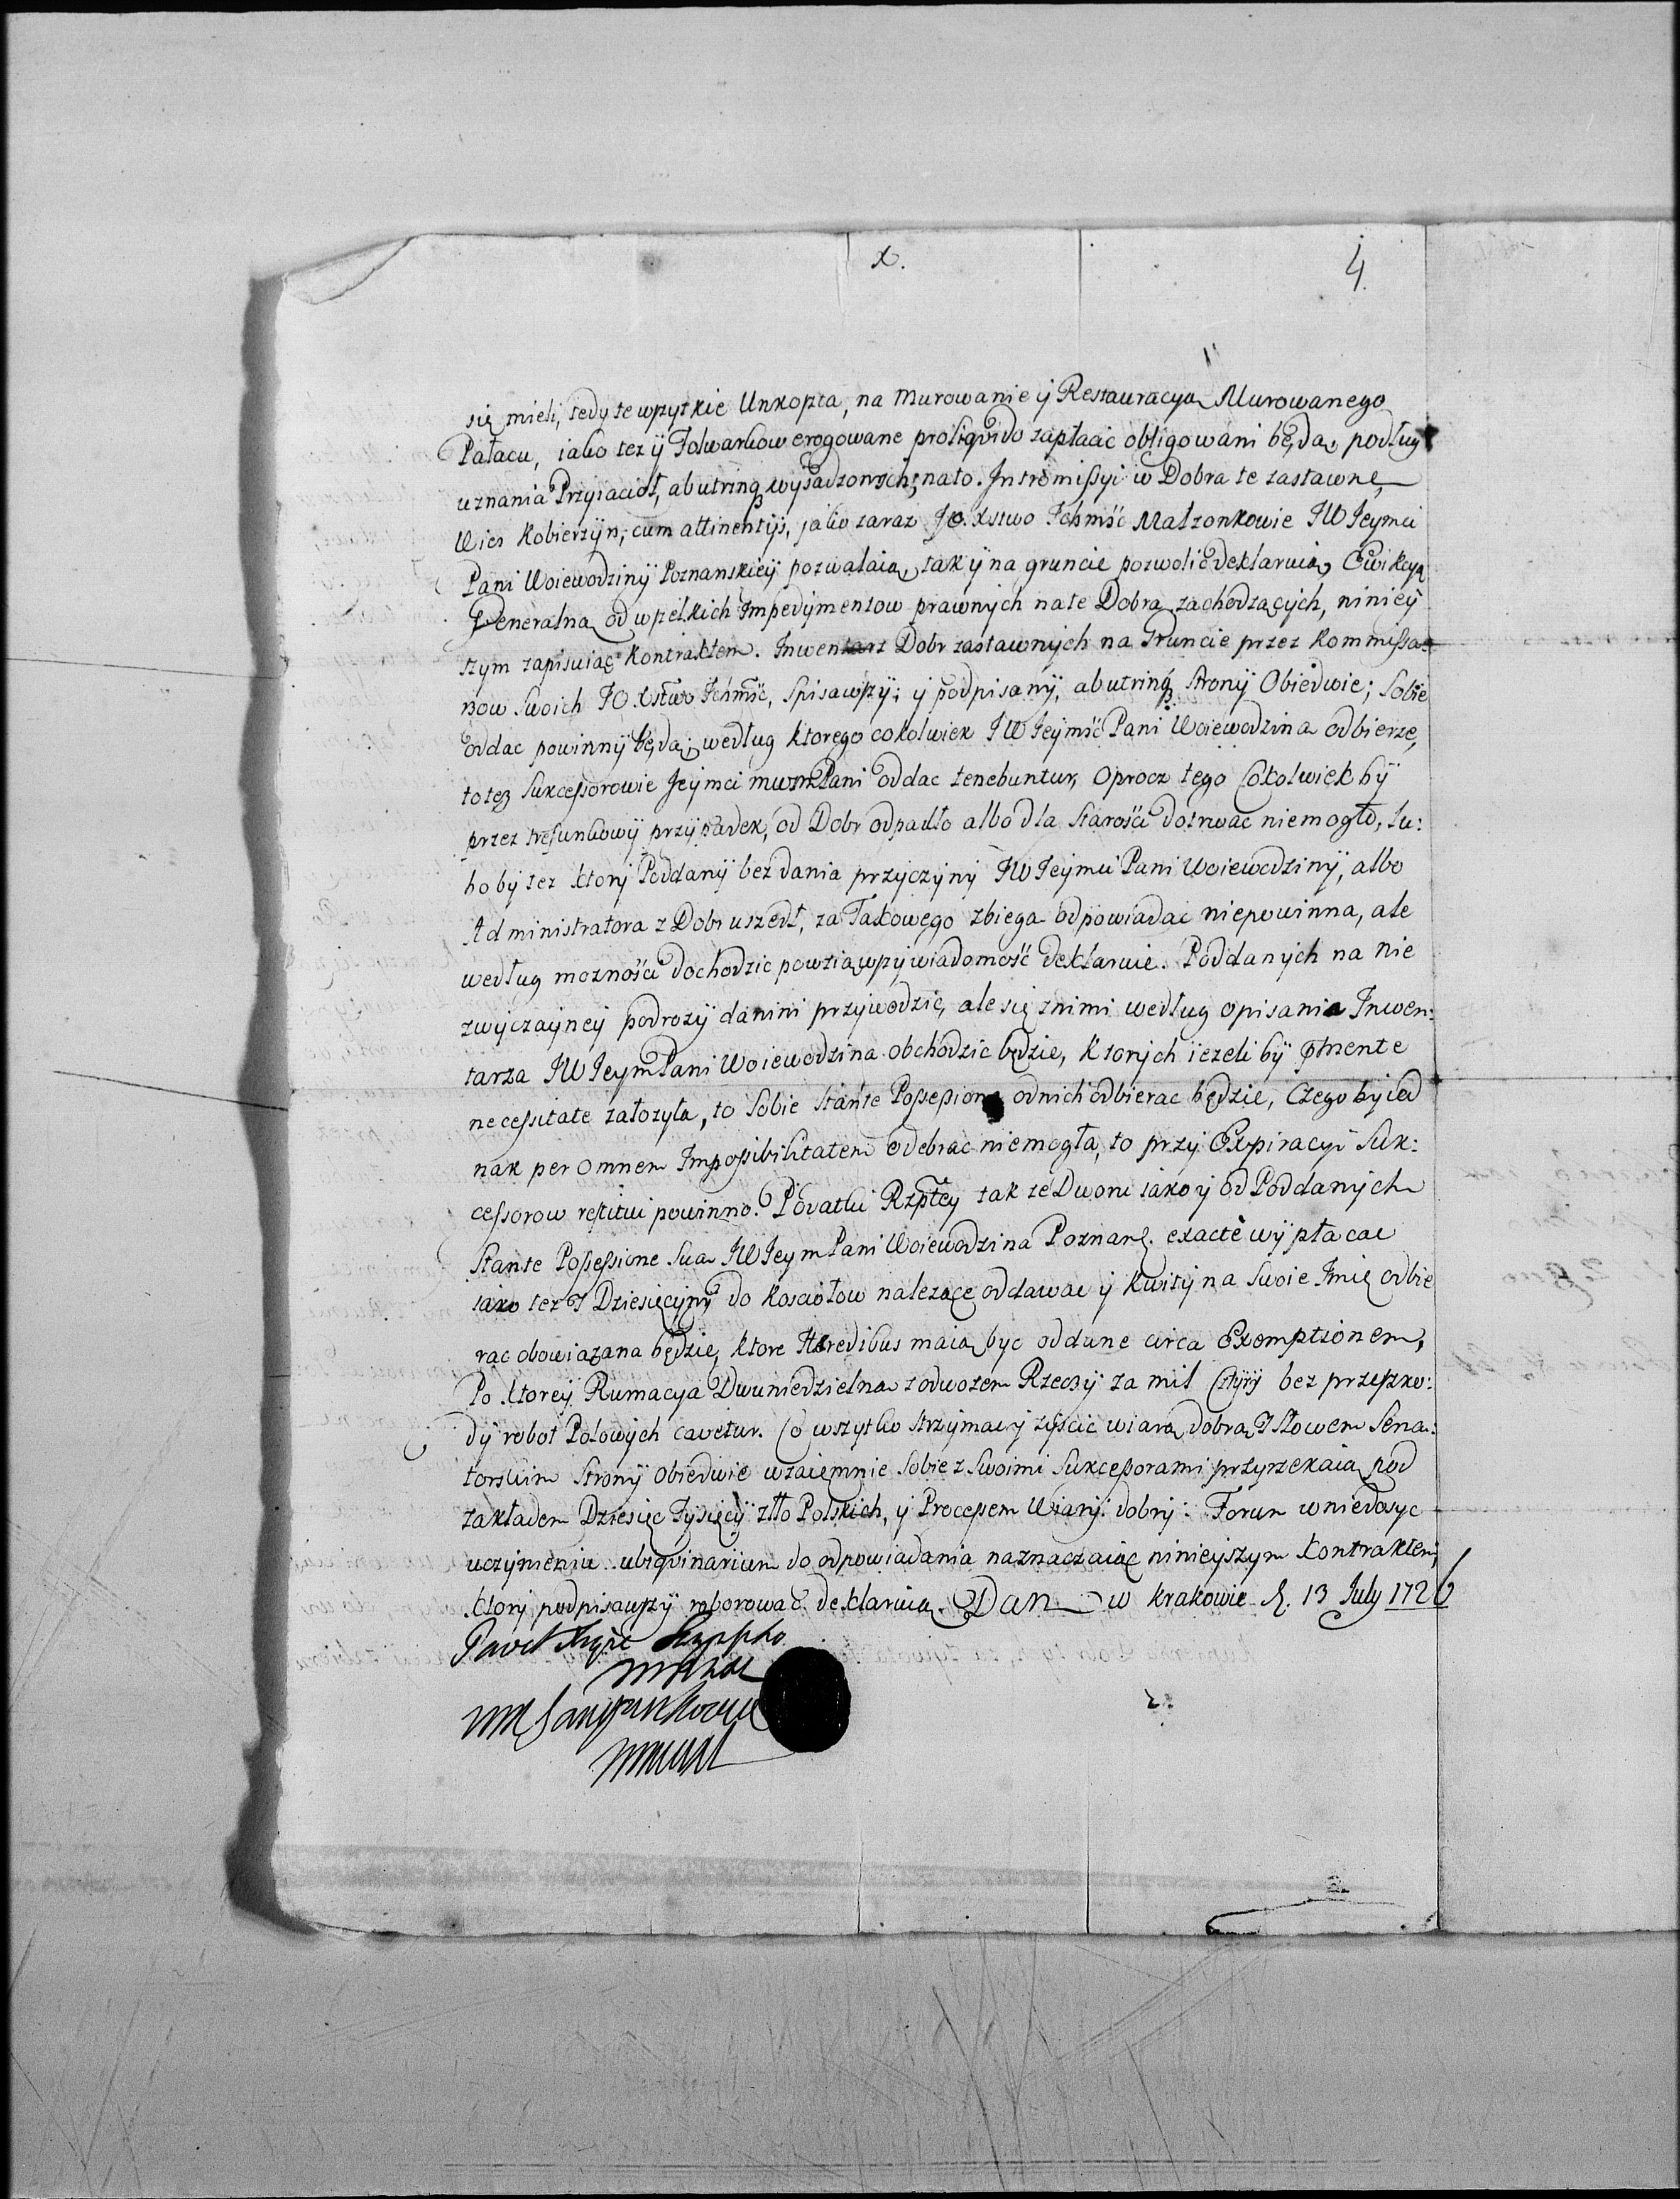 x.
4.
się mieli, tedy te wszytkie Unkoszta, na Murowanie ÿ Restauracyą Murowanego
Pałacu, iako tez ÿ Folwarkow erogowane pro liqvido zapłacic obligowani będą, podług
uznania Przyiacioł, ab utrinq wysadzonych, na to. Intromissyi w Dobra te zastawne,
Wies Kobierzyn, cum attinentijs, jako zaraz JO. Xstwo Ichmśc Małzonkowie JW Jeymci
Pani Woiewodzinÿ Poznanskieÿ pozwalaią, tak ÿ na gruncie pozwolic deklaruią, Ewikcyą
Generalną od wszelkich Impedymentow prawnych na te Dobra zachodzących, ninieÿ
szym zapisuiąc Kontraktem. Inwentarz Dobr zastawnych na Gruncie przez Kommissa-
rzow Swoich JO. Xstwo Ichmśc, Spisawszÿ, y podpisanÿ, ab utrinq Stronÿ Obiedwie, Sobie
oddac powinnÿ będą, według ktorego cokolwiek JW Jeymśc Pani Woiewodzina odbierze,
to tez Sukcessorowie Jeymci Pani oddac tenebuntur, oprocz tego Cokolwiek bÿ
przez trefunkowÿ przÿpadek, od Dobr odpadło albo dla Starości dotrwac niemogło, lu:
bo bÿ tez ktory Poddanÿ bez dania przyczynÿ JW Jeymci Pani Woiewodzinÿ, albo
Administratora z Dobr uszedł, za Takowego zbiega odpowiadac niepowinna, ale
według moznosci dochodzic powziąwszÿ wiadomość deklaruie. Poddanych na nie
zwyczayney podrozÿ danini przywodzic, ale się z nimi według opisania Inwen:
tarza JW Jeym Pani Woiewodzina obchodzic będzie, ktorych iezeli bÿ
necessitate załozyła, to Sobie Stante Possessione od nich odbierac będzie, Czego by ied
nak per omnem Impossibilitatem odebrac niemogła, to przy Expiracyi Suk:
cessorow restitui powinno. Podatki Rzptey tak ze Dworu iako y od Poddanych
Stante Possessione Sua JW Jeym Pani Woiewodzina Poznans. exactè wÿpłacac
iako tez Y Dziesięcÿnÿ do Kosciołow nalezące oddawac ÿ Kwity na Swoie Imię odbie
rac obowiązana będzie, ktore Hæredibus maią byc oddane circa Exemptionem,
Po ktoreÿ Rumacya Dwuniedzielna z odwozem Rzeczÿ za mil Cztÿrÿ bez przeszko:
dÿ robot Polowych cavetur. Co wszytko strzymac y zyscic wiarą dobrą Y Słowem Sena:
torskim Stronÿ obiedwie wzaiemnie Sobie z Swoimi Sukcessorami przyrzekaią pod
zakładem Dziesięc Tysięcÿ złło Polskich, y Processem Wiarÿ dobrÿ: Forum w niedosyc
uczynieniu ubiqvinarium do odpowiadania naznaczaiąc ninieyszym Kontraktem,
ktory podpisawszÿ roborowac deklaruią. Dan w Krakowie d. 13 July 1726
Paweł Xsąze Sanguszko